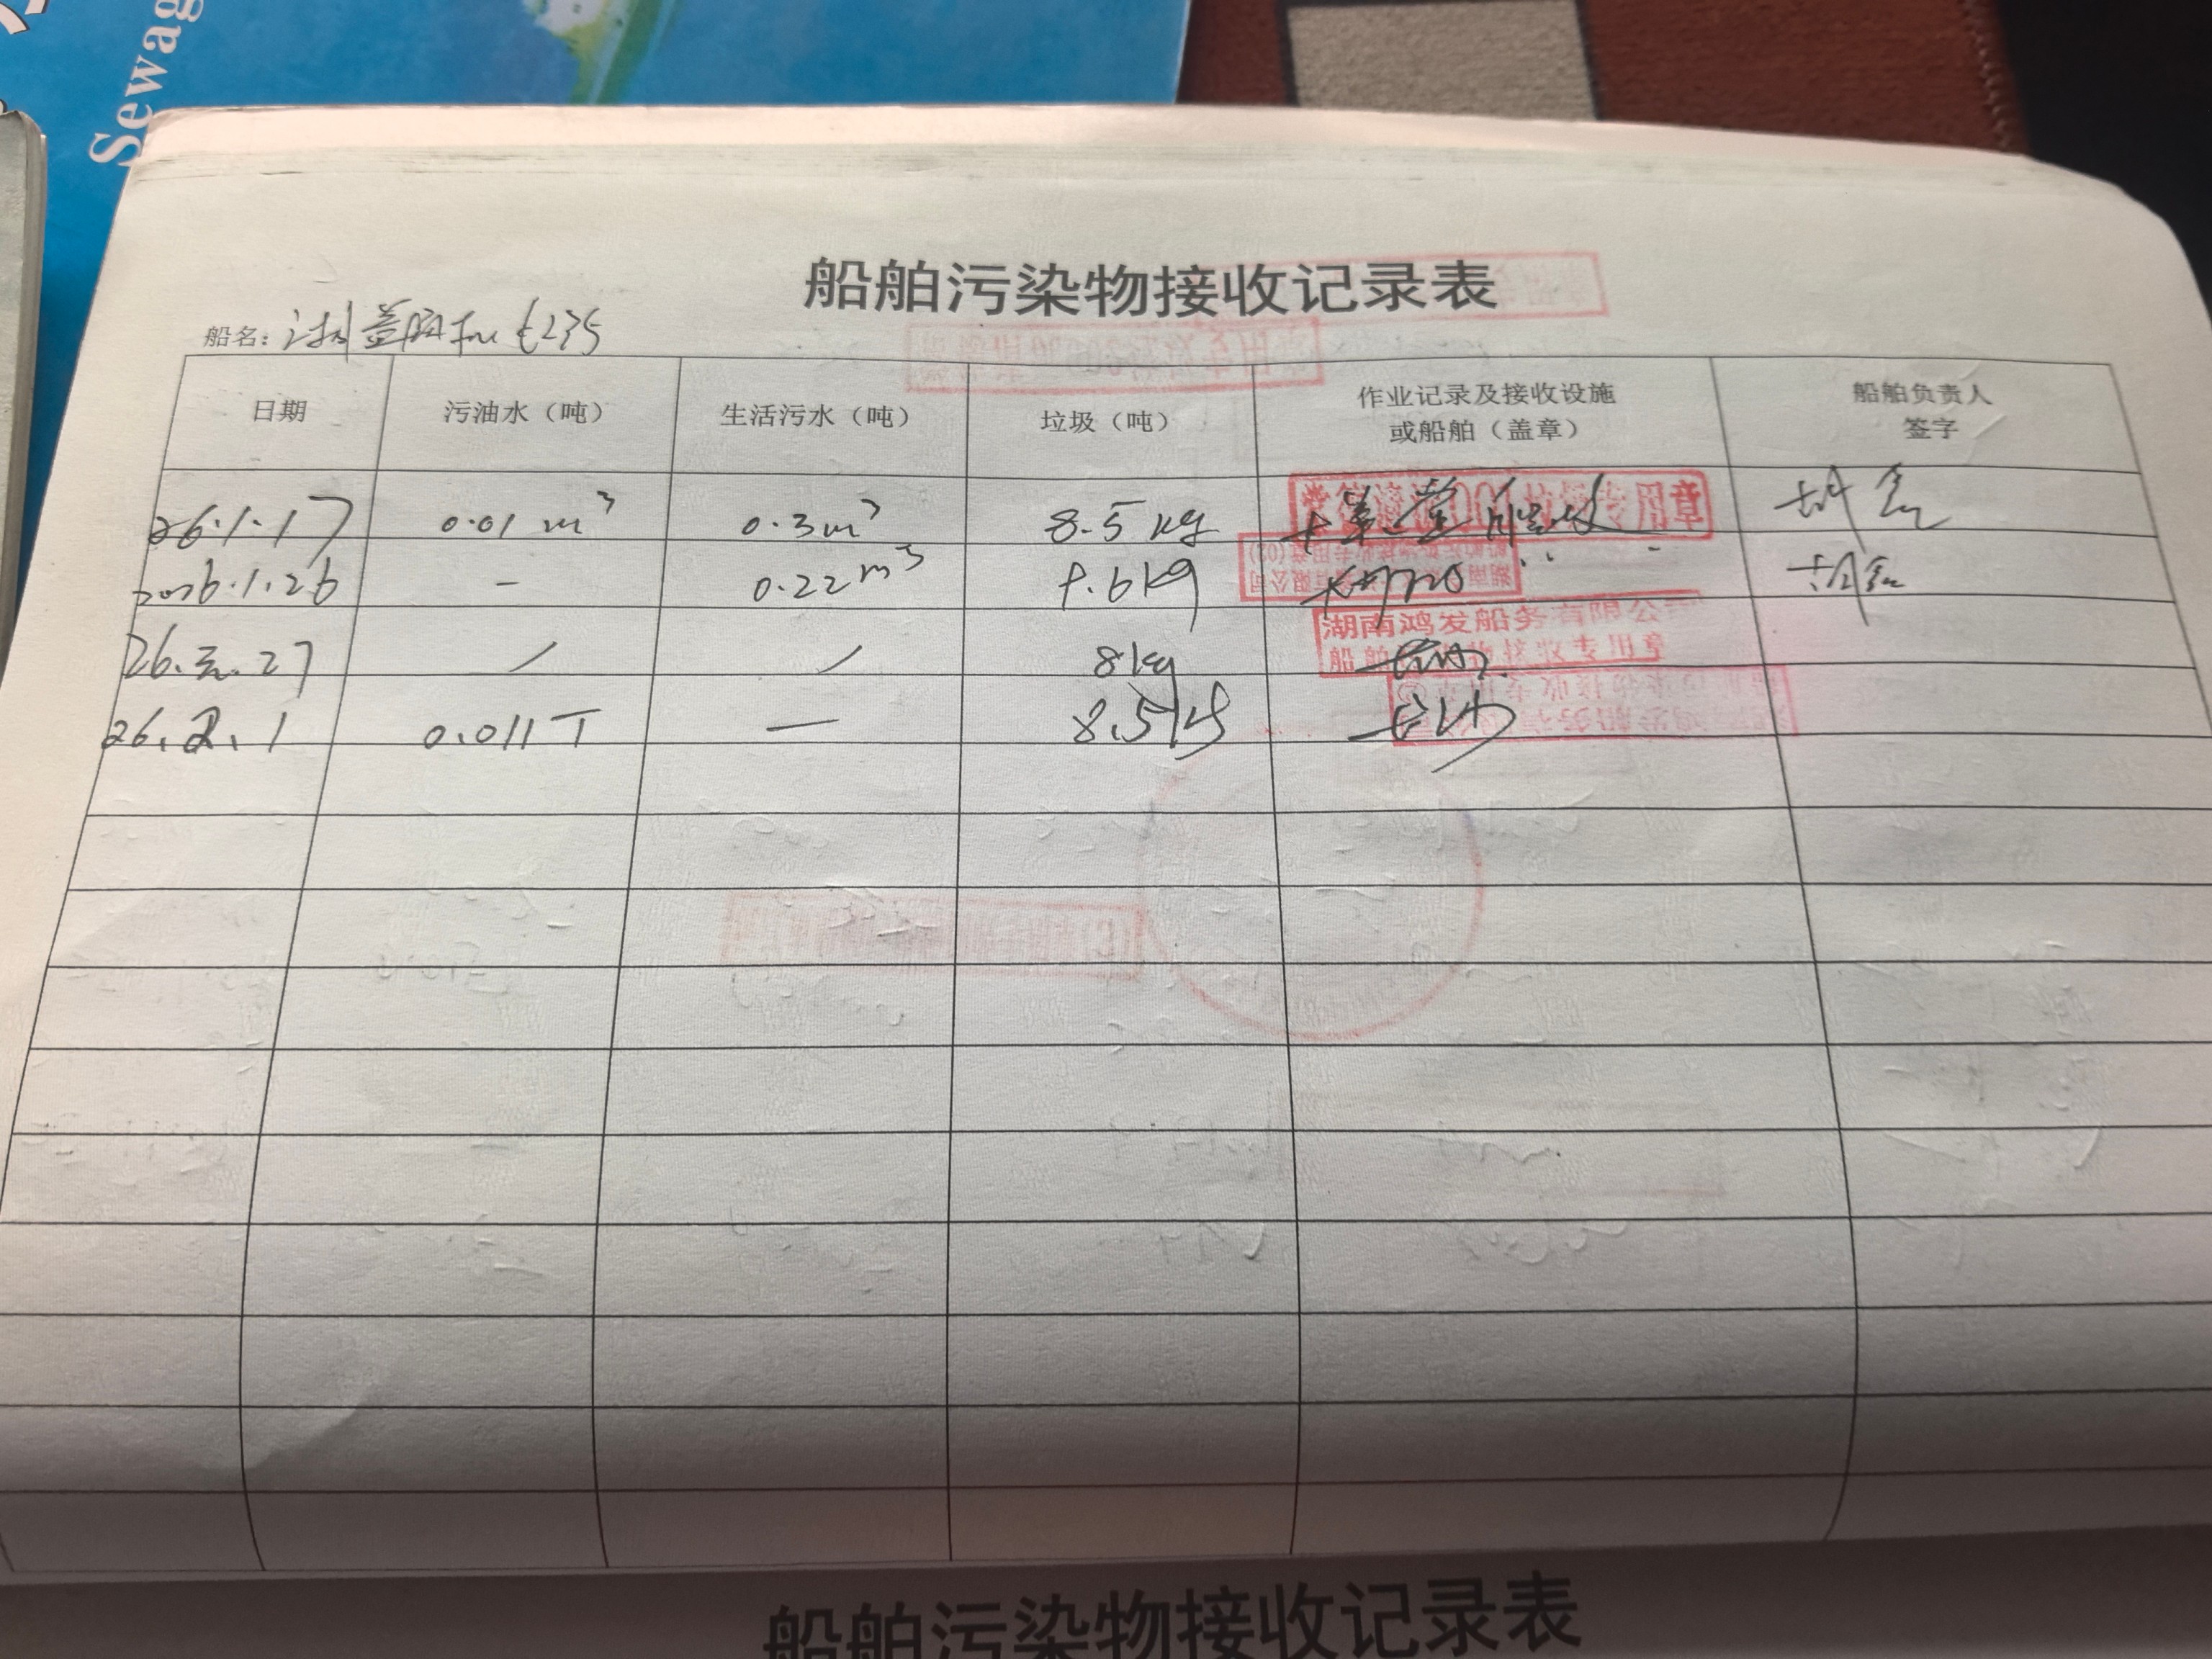 Sewag
船舶污染物接收记录表
船名：湘益阳机
日期 污油水（吨） 生活污水（吨） 垃圾（吨） 作业记录及接收设施或船舶（盖章） 船舶负责人签字
26.1.17 0.01 m³ 0.3m³ 8.5 kg 专用章 胡
2026.1.26 — 0.22m³ 9.6kg 胡
26.元.27 / / 8kg
湖南鸿发船务有限公
船舶 接收专用章
26.2.1 0.011T — 8.5kg 长沙
船舶污染物接收记录表